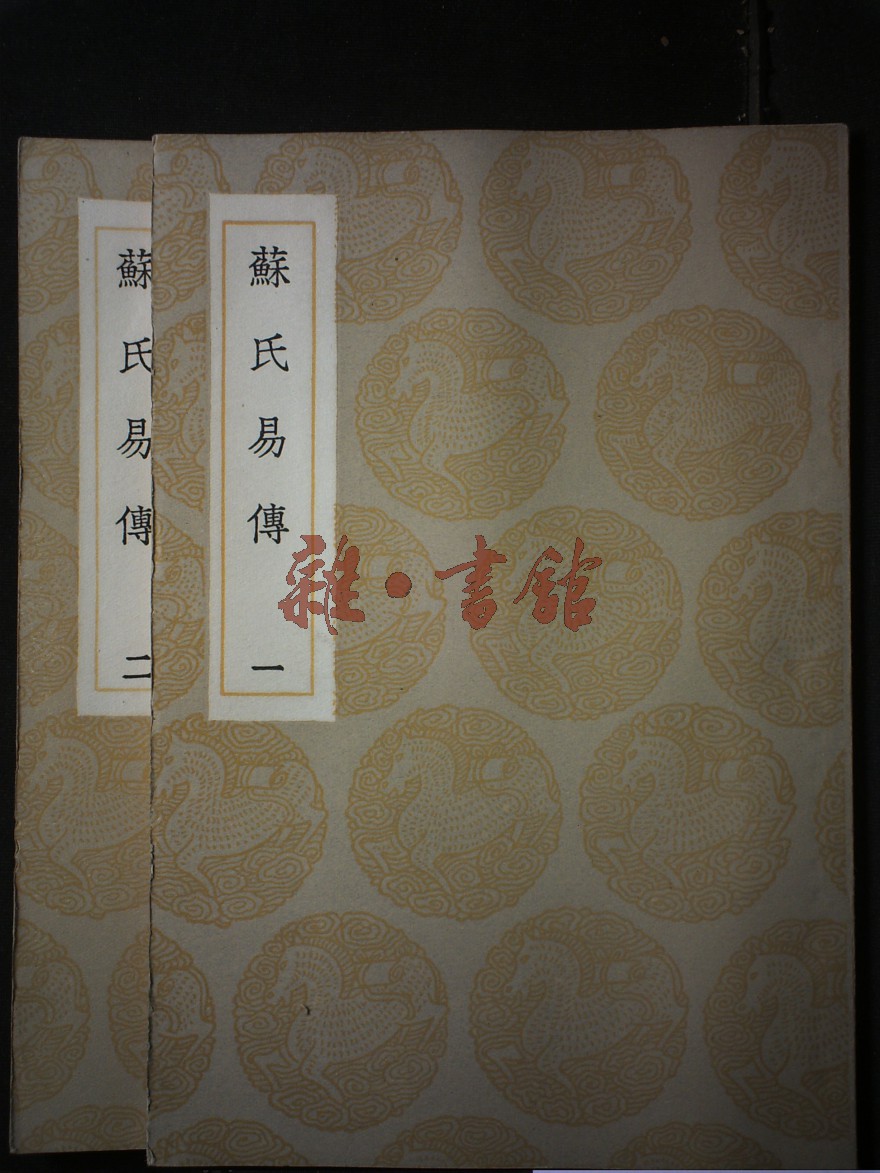 蘇氏易傳 一
蘇氏易傳 二
雜·書館